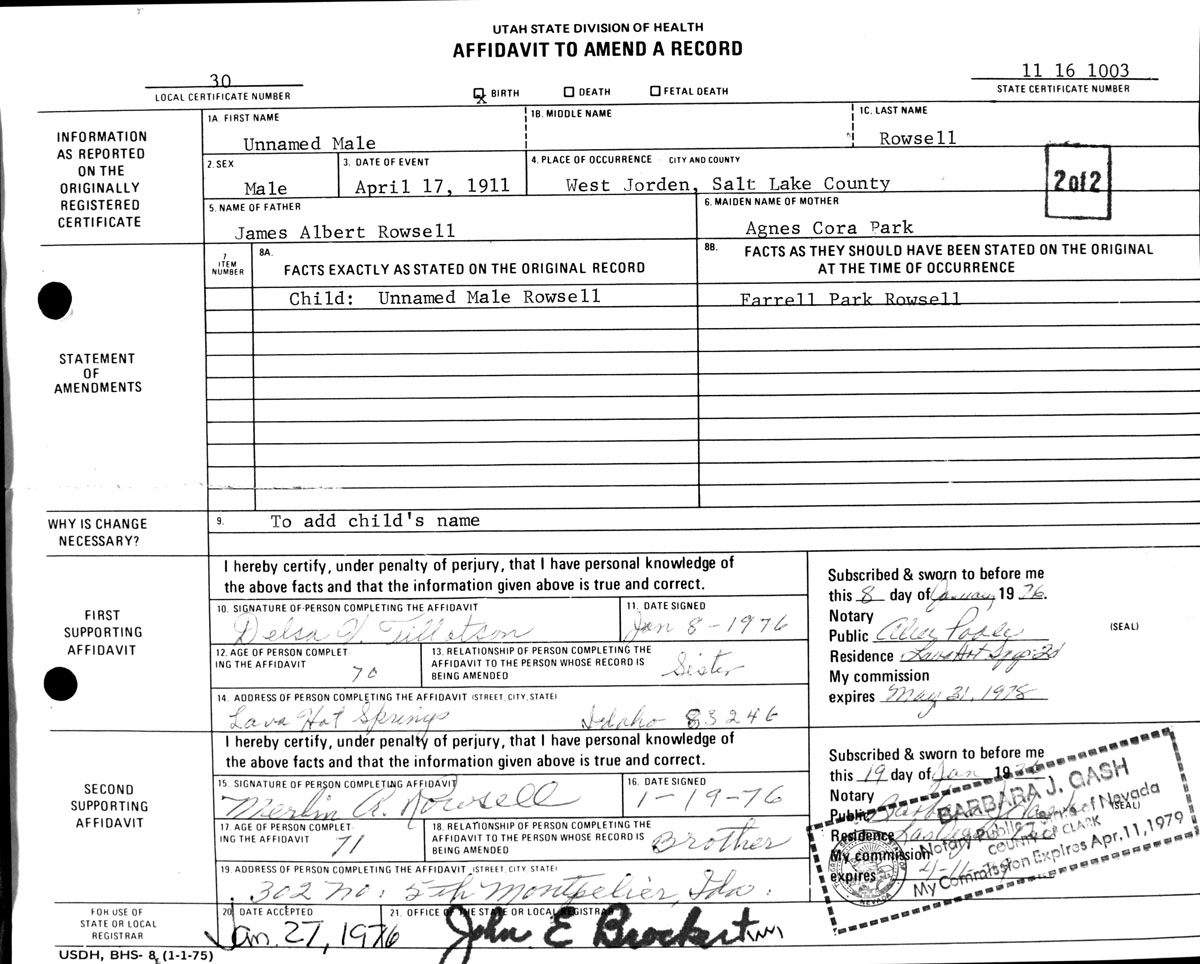 UTAH STATE DIVISION OF HEALTH
AFFIDAVIT TO AMEND A RECORD
30
LOCAL CERTIFICATE NUMBER
X BIRTH DEATH FETAL DEATH
11 16 1003
STATE CERTIFICATE NUMBER
INFORMATION
AS REPORTED
ON THE
ORIGINALLY
REGISTERED
CERTIFICATE
1A. FIRST NAME
Unnamed Male
1B. MIDDLE NAME
1C. LAST NAME
Rowsell
2. SEX
Male
3. DATE OF EVENT
April 17, 1911
4. PLACE OF OCCURRENCE - CITY AND COUNTY
West Jorden, Salt Lake County
2 of 2
5. NAME OF FATHER
James Albert Rowsell
6. MAIDEN NAME OF MOTHER
Agnes Cora Park
STATEMENT
OF
AMENDMENTS
7
ITEM
NUMBER
8A.
FACTS EXACTLY AS STATED ON THE ORIGINAL RECORD
8B.
FACTS AS THEY SHOULD HAVE BEEN STATED ON THE ORIGINAL
AT THE TIME OF OCCURRENCE
Child: Unnamed Male Rowsell
Farrell Park Rowsell
WHY IS CHANGE
NECESSARY?
9. To add child's name
FIRST
SUPPORTING
AFFIDAVIT
I hereby certify, under penalty of perjury, that I have personal knowledge of
the above facts and that the information given above is true and correct.
10. SIGNATURE OF PERSON COMPLETING THE AFFIDAVIT
Delsa V. Tillotson
11. DATE SIGNED
Jan 8-1976
12. AGE OF PERSON COMPLET
ING THE AFFIDAVIT
70
13. RELATIONSHIP OF PERSON COMPLETING THE
AFFIDAVIT TO THE PERSON WHOSE RECORD IS
BEING AMENDED
Sister
14. ADDRESS OF PERSON COMPLETING THE AFFIDAVIT (STREET, CITY, STATE)
Lava Hot Springs Idaho 83246
Subscribed & sworn to before me
this 8 day of January 1976.
Notary
Public
(SEAL)
Residence Lava Hot Spgs
My commission
expires May 31, 1978
SECOND
SUPPORTING
AFFIDAVIT
I hereby certify, under penalty of perjury, that I have personal knowledge of
the above facts and that the information given above is true and correct.
15. SIGNATURE OF PERSON COMPLETING AFFIDAVIT
Merlin A. Rowsell
16. DATE SIGNED
1-19-76
17. AGE OF PERSON COMPLET
ING THE AFFIDAVIT
71
18. RELATIONSHIP OF PERSON COMPLETING THE
AFFIDAVIT TO THE PERSON WHOSE RECORD IS
BEING AMENDED
Brother
19. ADDRESS OF PERSON COMPLETING THE AFFIDAVIT (STREET, CITY, STATE)
302 No: 5th Montpelier, Ida:
Subscribed & sworn to before me
this 19 day of Jan 1976
Notary
Public
(SEAL)
Residence
My commission
expires
BARBARA J. GASH
Notary Public - State of Nevada
COUNTY OF CLARK
My Commission Expires Apr. 11, 1979
NEVADA
FOR USE OF
STATE OR LOCAL
REGISTRAR
20. DATE ACCEPTED
Jan. 27, 1976
21. OFFICE OF THE STATE OR LOCAL REGISTRAR
John E Brockert
USDH, BHS- 8 (1-1-75)